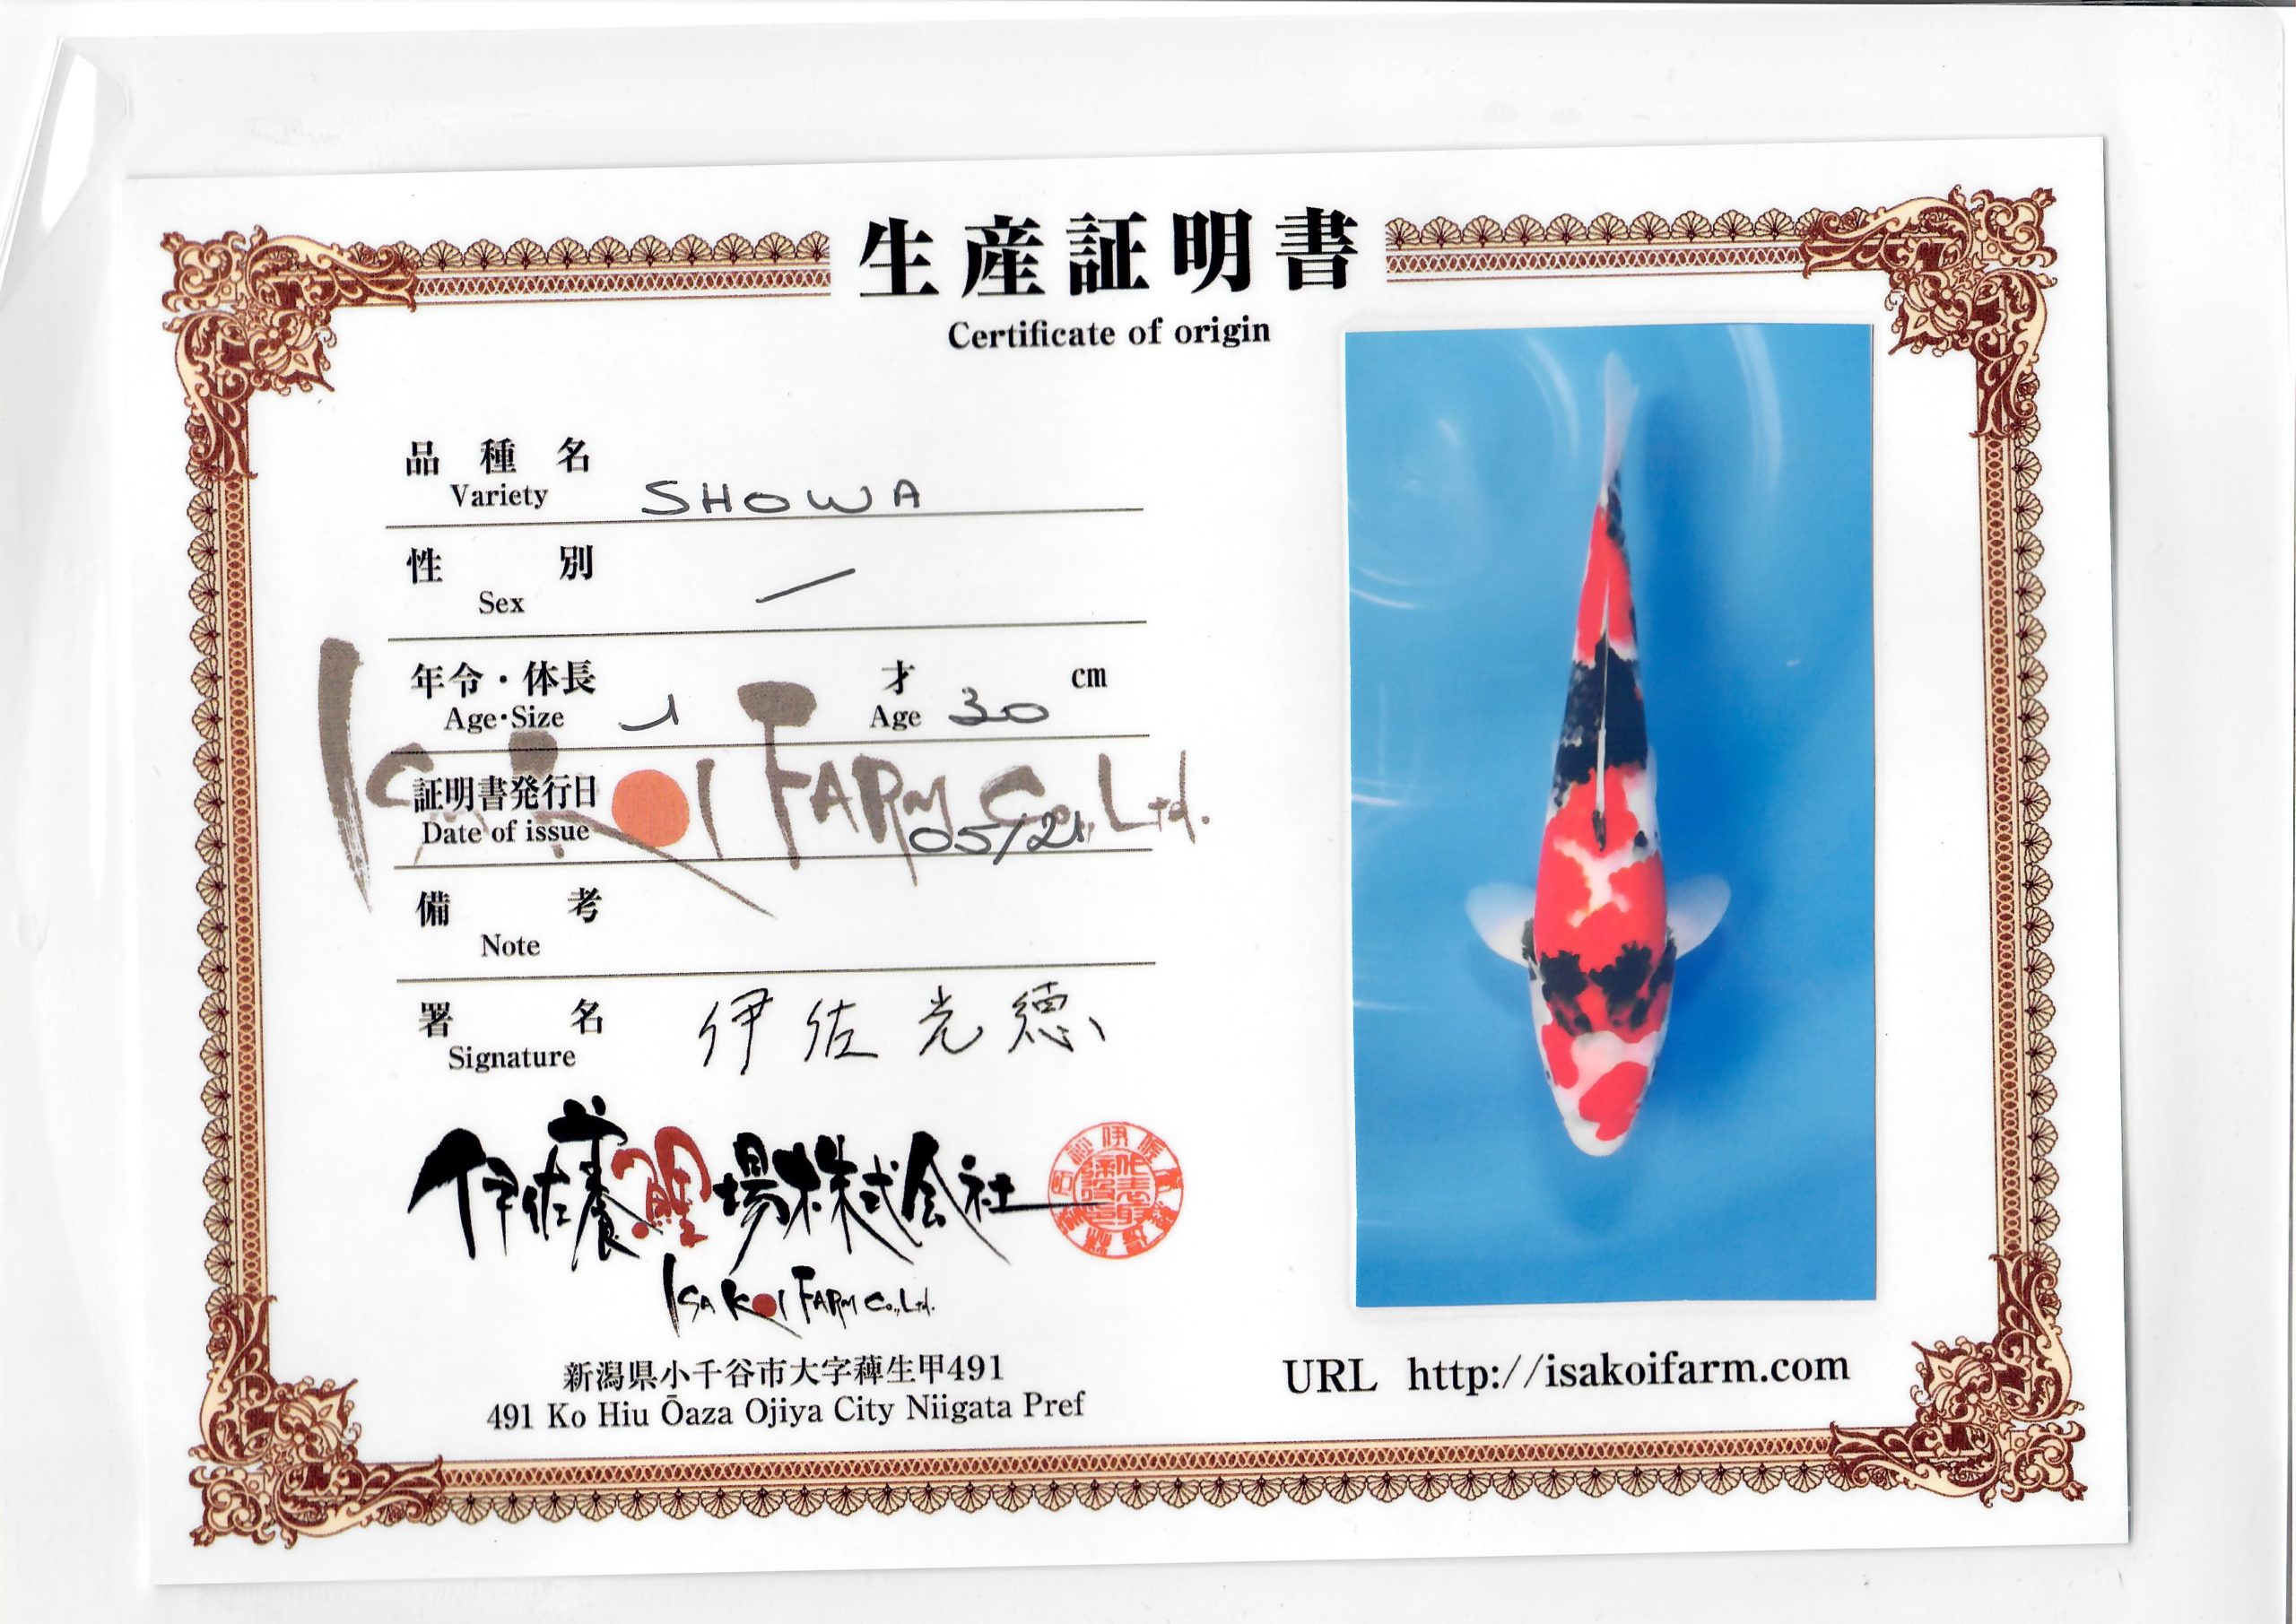 生産証明書
Certificate of origin
品種名
Variety SHOWA
性別
Sex —
年令・体長 才 cm
Age・Size 1 Age 30
ISA KOI FARM Co., Ltd.
証明書発行日
Date of issue 05/21
備考
Note
署名 伊佐光徳
Signature
伊佐養鯉場株式会社
ISA KOI FARM Co., Ltd.
新潟県小千谷市大字薭生甲491
491 Ko Hiu Ōaza Ojiya City Niigata Pref
URL http://isakoifarm.com